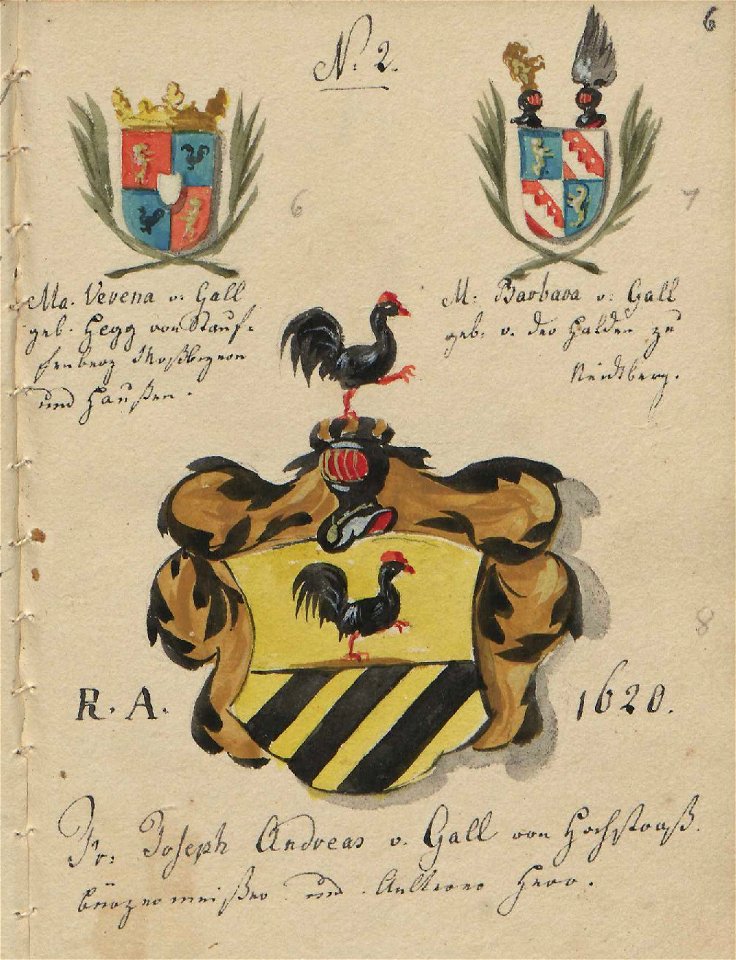 6
N. 2.
6
7
Ma. Verena v. Gall
geb. Hegg von Stauf-
fenberg
und Haußen.
M. Barbara v. Gall
geb. v. der Halden zu
Neidtberg.
8
R. A. 1620.
Fr: Joseph Andreas v. Gall von Hochstraß.
bürgermeister und Herr.